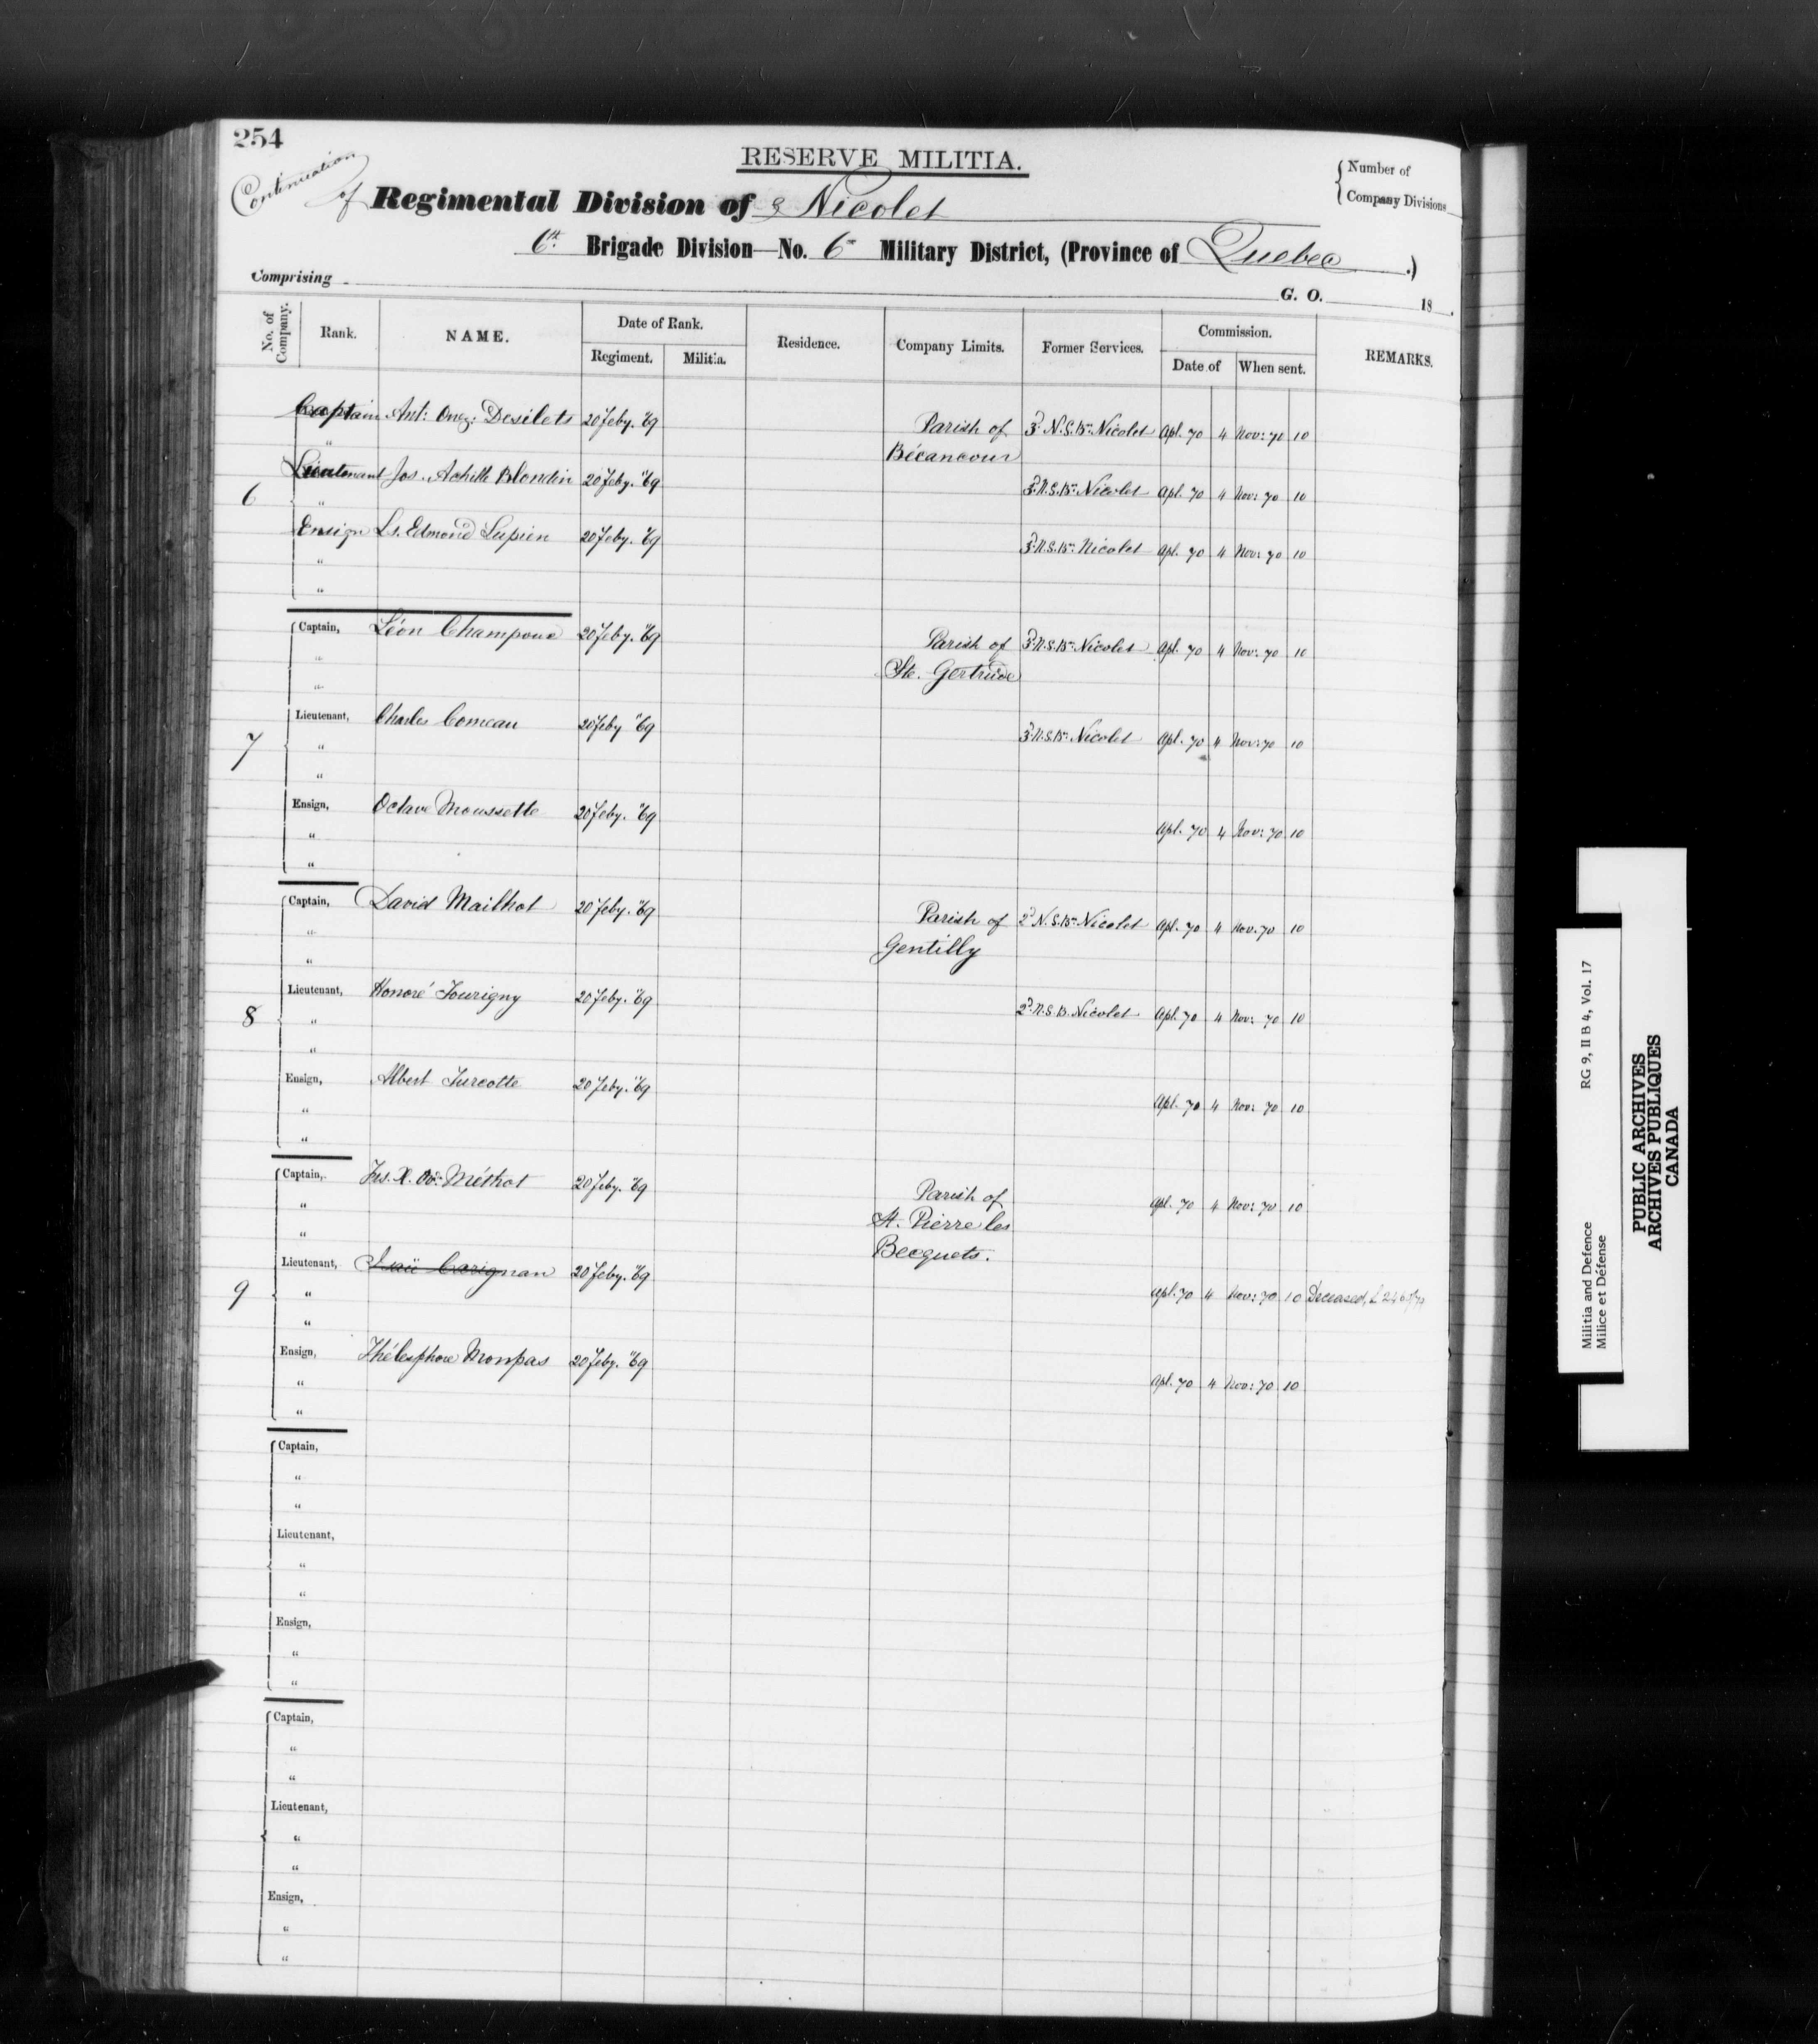 254
RESERVE MILITIA.
Continuation of Regimental Division of Nicolet
Number of Company Divisions
6th Brigade Division—No. 6 Military District, (Province of Quebec.)
Comprising
G. O. 18 .
No. of Company. Rank. NAME. Date of Rank. Residence. Company Limits. Former Services. Commission. REMARKS.
Regiment. Militia. Date of When sent.
Captain Ant: Onez: Desilets 20 Feby. "69 Parish of 3d N.S.Bn. Nicolet Apl. 70 4 Nov: 70 10
" Bécancour
6 Lieutenant Jos. Achille Blondin 20 Feby. "69 3d N.S.Bn. Nicolet Apl. 70 4 Nov: 70 10
"
Ensign Ls. Edmond Lupien 20 Feby. "69 3d N.S.Bn. Nicolet Apl. 70 4 Nov: 70 10
"
"
Captain, Léon Champoux 20 Feby. "69 Parish of 3d N.S.Bn. Nicolet Apl. 70 4 Nov: 70 10
" Ste. Gertrude
"
7 Lieutenant, Charles Comeau 20 Feby "69 3d N.S.Bn. Nicolet Apl. 70 4 Nov: 70 10
"
"
Ensign, Octave Moussette 20 Feby. "69 Apl. 70 4 Nov: 70 10
"
"
Captain, David Mailhot 20 Feby. "69 Parish of 2d N.S.Bn. Nicolet Apl. 70 4 Nov. 70 10
" Gentilly
"
8 Lieutenant, Honoré Tourigny 20 Feby. "69 2d N.S.B. Nicolet Apl. 70 4 Nov: 70 10
"
"
Ensign, Albert Turcotte 20 Feby. "69 Apl. 70 4 Nov: 70 10
"
"
Captain, Frs. X. Méthot 20 Feby. "69 Parish of Apl. 70 4 Nov: 70 10
" St. Pierre les
" Becquets.
9 Lieutenant, Isaïe Carignan 20 Feby. "69 Apl. 70 4 Nov: 70 10 Deceased,
"
"
Ensign, Thélesphore Monpas 20 Feby. "69 Apl. 70 4 Nov: 70 10
"
"
Captain,
"
"
Lieutenant,
"
"
Ensign,
"
"
Captain,
"
"
Lieutenant,
"
"
Ensign,
"
"
Militia and Defence RG 9, II B 4, Vol. 17
Milice et Défense
PUBLIC ARCHIVES
ARCHIVES PUBLIQUES
CANADA